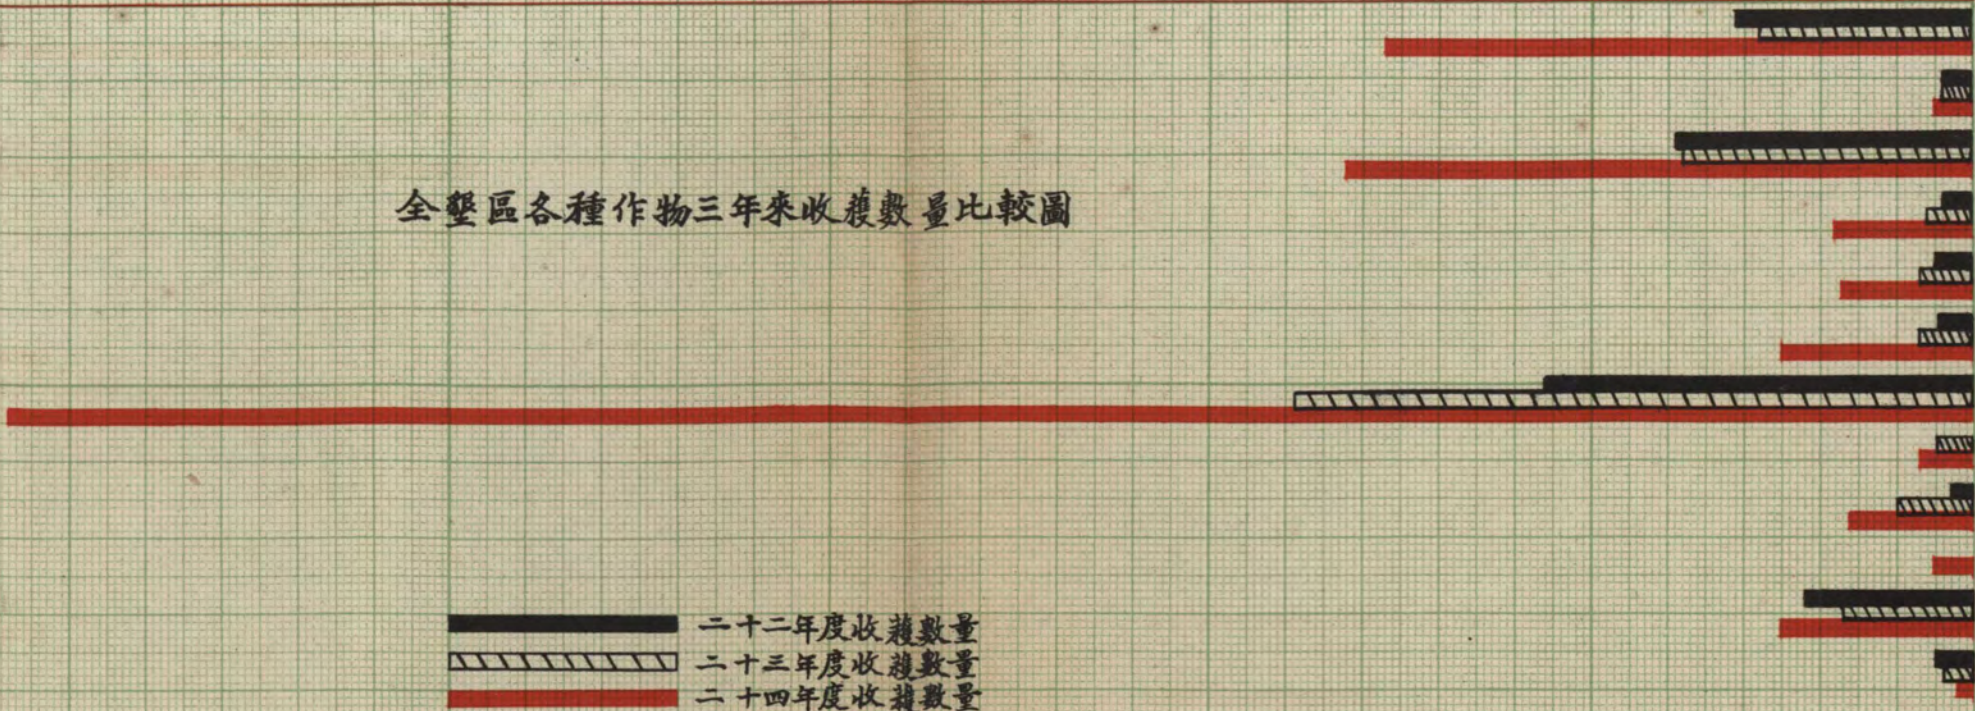 全墾區各種作物三年來收穫數量比較圖
二十二年度收穫數量
二十三年度收穫數量
二十四年度收穫數量